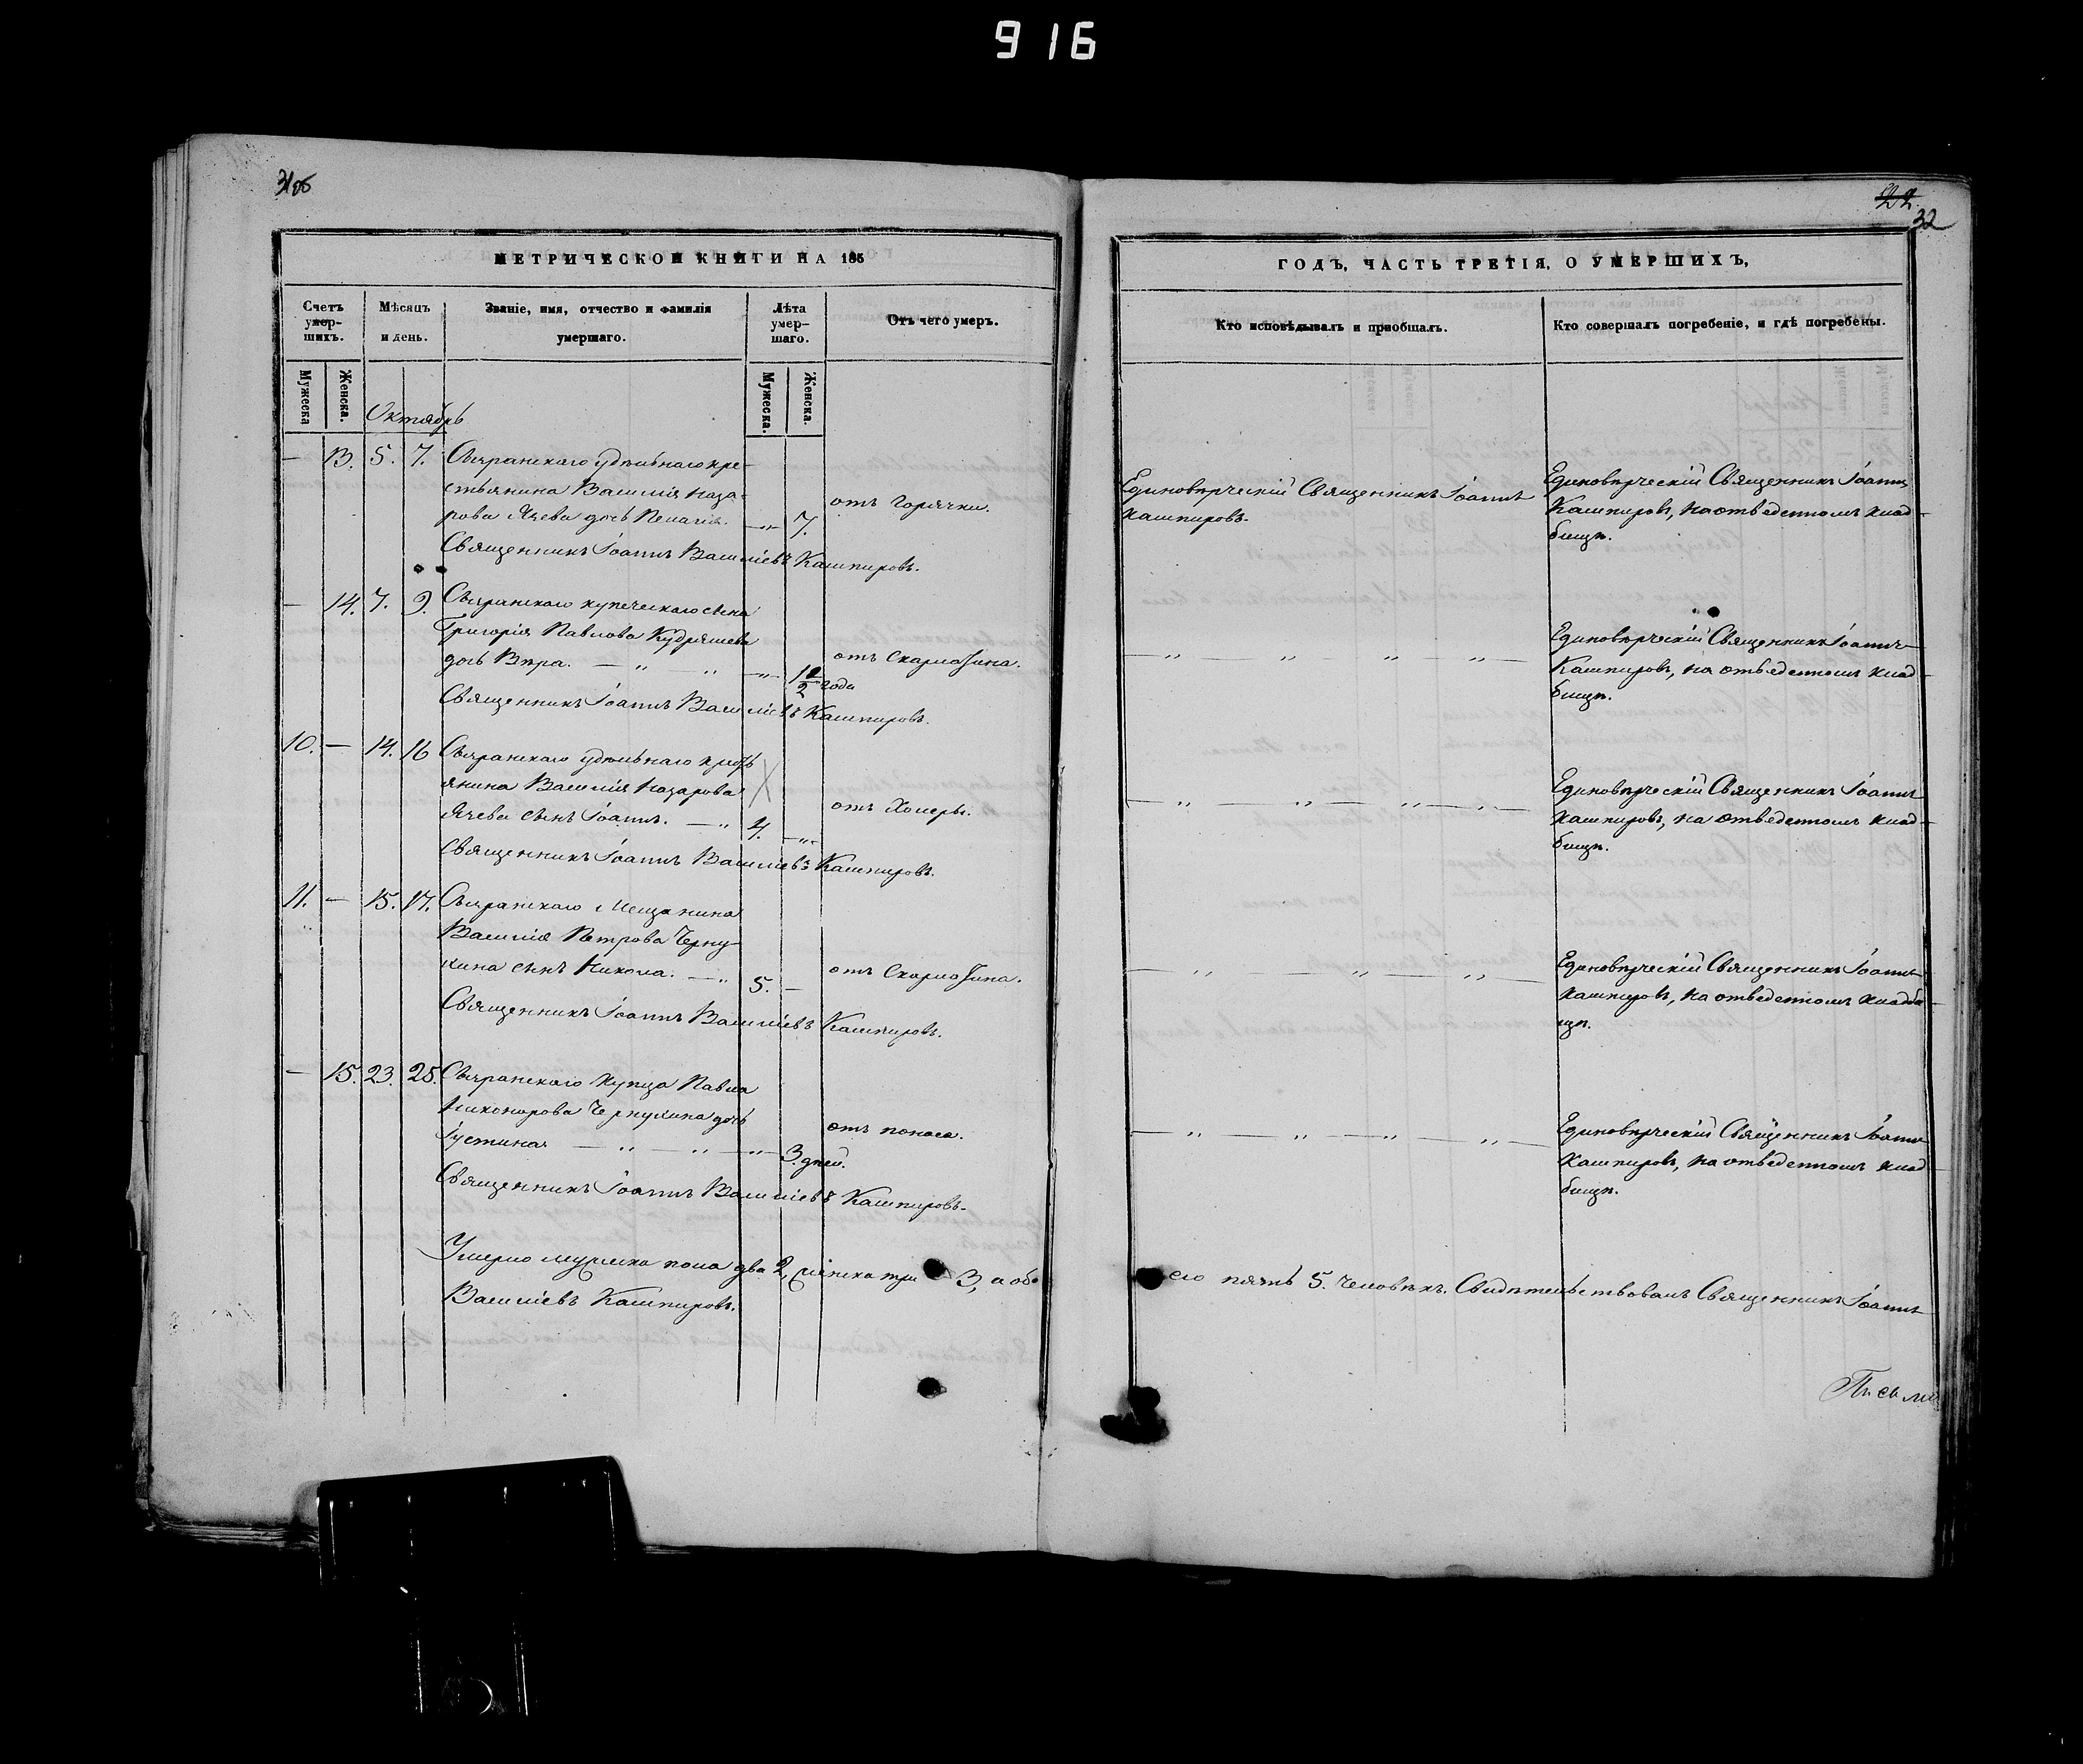 916
31об
22.
32
МЕТРИЧЕСКОЙ КНИГИ НА 185
Счетъ умер-шихъ.
Мѣсяцъ и день.
Званіе, имя, отчество и фамилія умершаго.
Лѣта умер-шаго.
Отъ чего умеръ.
Мужеска
Женска.
Мужеска.
Женска.
Октябрь
— 13. 5. 7. Сызранскаго удѣльнаго кре-
стьянина Василія Наза-
рова Ячева дочь Пелагія. — „ — 7. отъ горячки.
Священникъ Іоаннъ Василіевъ Кашпировъ.
— 14. 7. 9. Сызранскаго купеческаго сына
Григорія Павлова Кудряшева
дочь Вѣра. — „ — „ — „ — 1 1/2 года отъ Скарлатина.
Священникъ Іоаннъ Василіевъ Кашпировъ.
10. — 14. 16 Сызранскаго удѣльнаго крест
янина Василія Назарова
Ячева сынъ Іоаннъ. — „ 4. — „ отъ Холеры.
Священникъ Іоаннъ Василіевъ Кашпировъ.
11. — 15. 17. Сызранскаго Мещанина
Василія Петрова Черну-
хина сынъ Никола. — „ 5. — отъ Скарлатина.
Священникъ Іоаннъ Василіевъ Кашпировъ.
— 15. 23. 25. Сызранскаго Купца Павла
Никонорова Чернухина дочь
Іустина — „ — „ — „ — 3. дней. отъ поноса.
Священникъ Іоаннъ Василіевъ Кашпировъ.
Умерло мужеска пола два 2, женска три 3, а обо
Василіевъ Кашпировъ.
ГОДЪ, ЧАСТЬ ТРЕТІЯ, О УМЕРШИХЪ,
Кто исповѣдывалъ и пріобщалъ.
Кто совершалъ погребеніе, и гдѣ погребены.
Единовѣрческій Священникъ Іоаннъ
Кашпировъ.
Единовѣрческій Священникъ Іоаннъ
Кашпировъ, на отведенномъ клад-
бищѣ.
— „ — „ — „ — „ —
Единовѣрческій Священникъ Іоаннъ
Кашпировъ, на отведенномъ клад-
бищѣ.
— „ — „ — „ — „ —
Единовѣрческій Священникъ Іоаннъ
Кашпировъ, на отведенномъ клад-
бищѣ.
— „ — „ — „ —
Единовѣрческій Священникъ Іоаннъ
Кашпировъ, на отведенномъ кладби-
щѣ.
— „ — „ — „ — „ —
Единовѣрческій Священникъ Іоаннъ
Кашпировъ, на отведенномъ клад
бищѣ.
его пять 5. Человѣкъ. Свидѣтельствовалъ Священникъ Іоаннъ